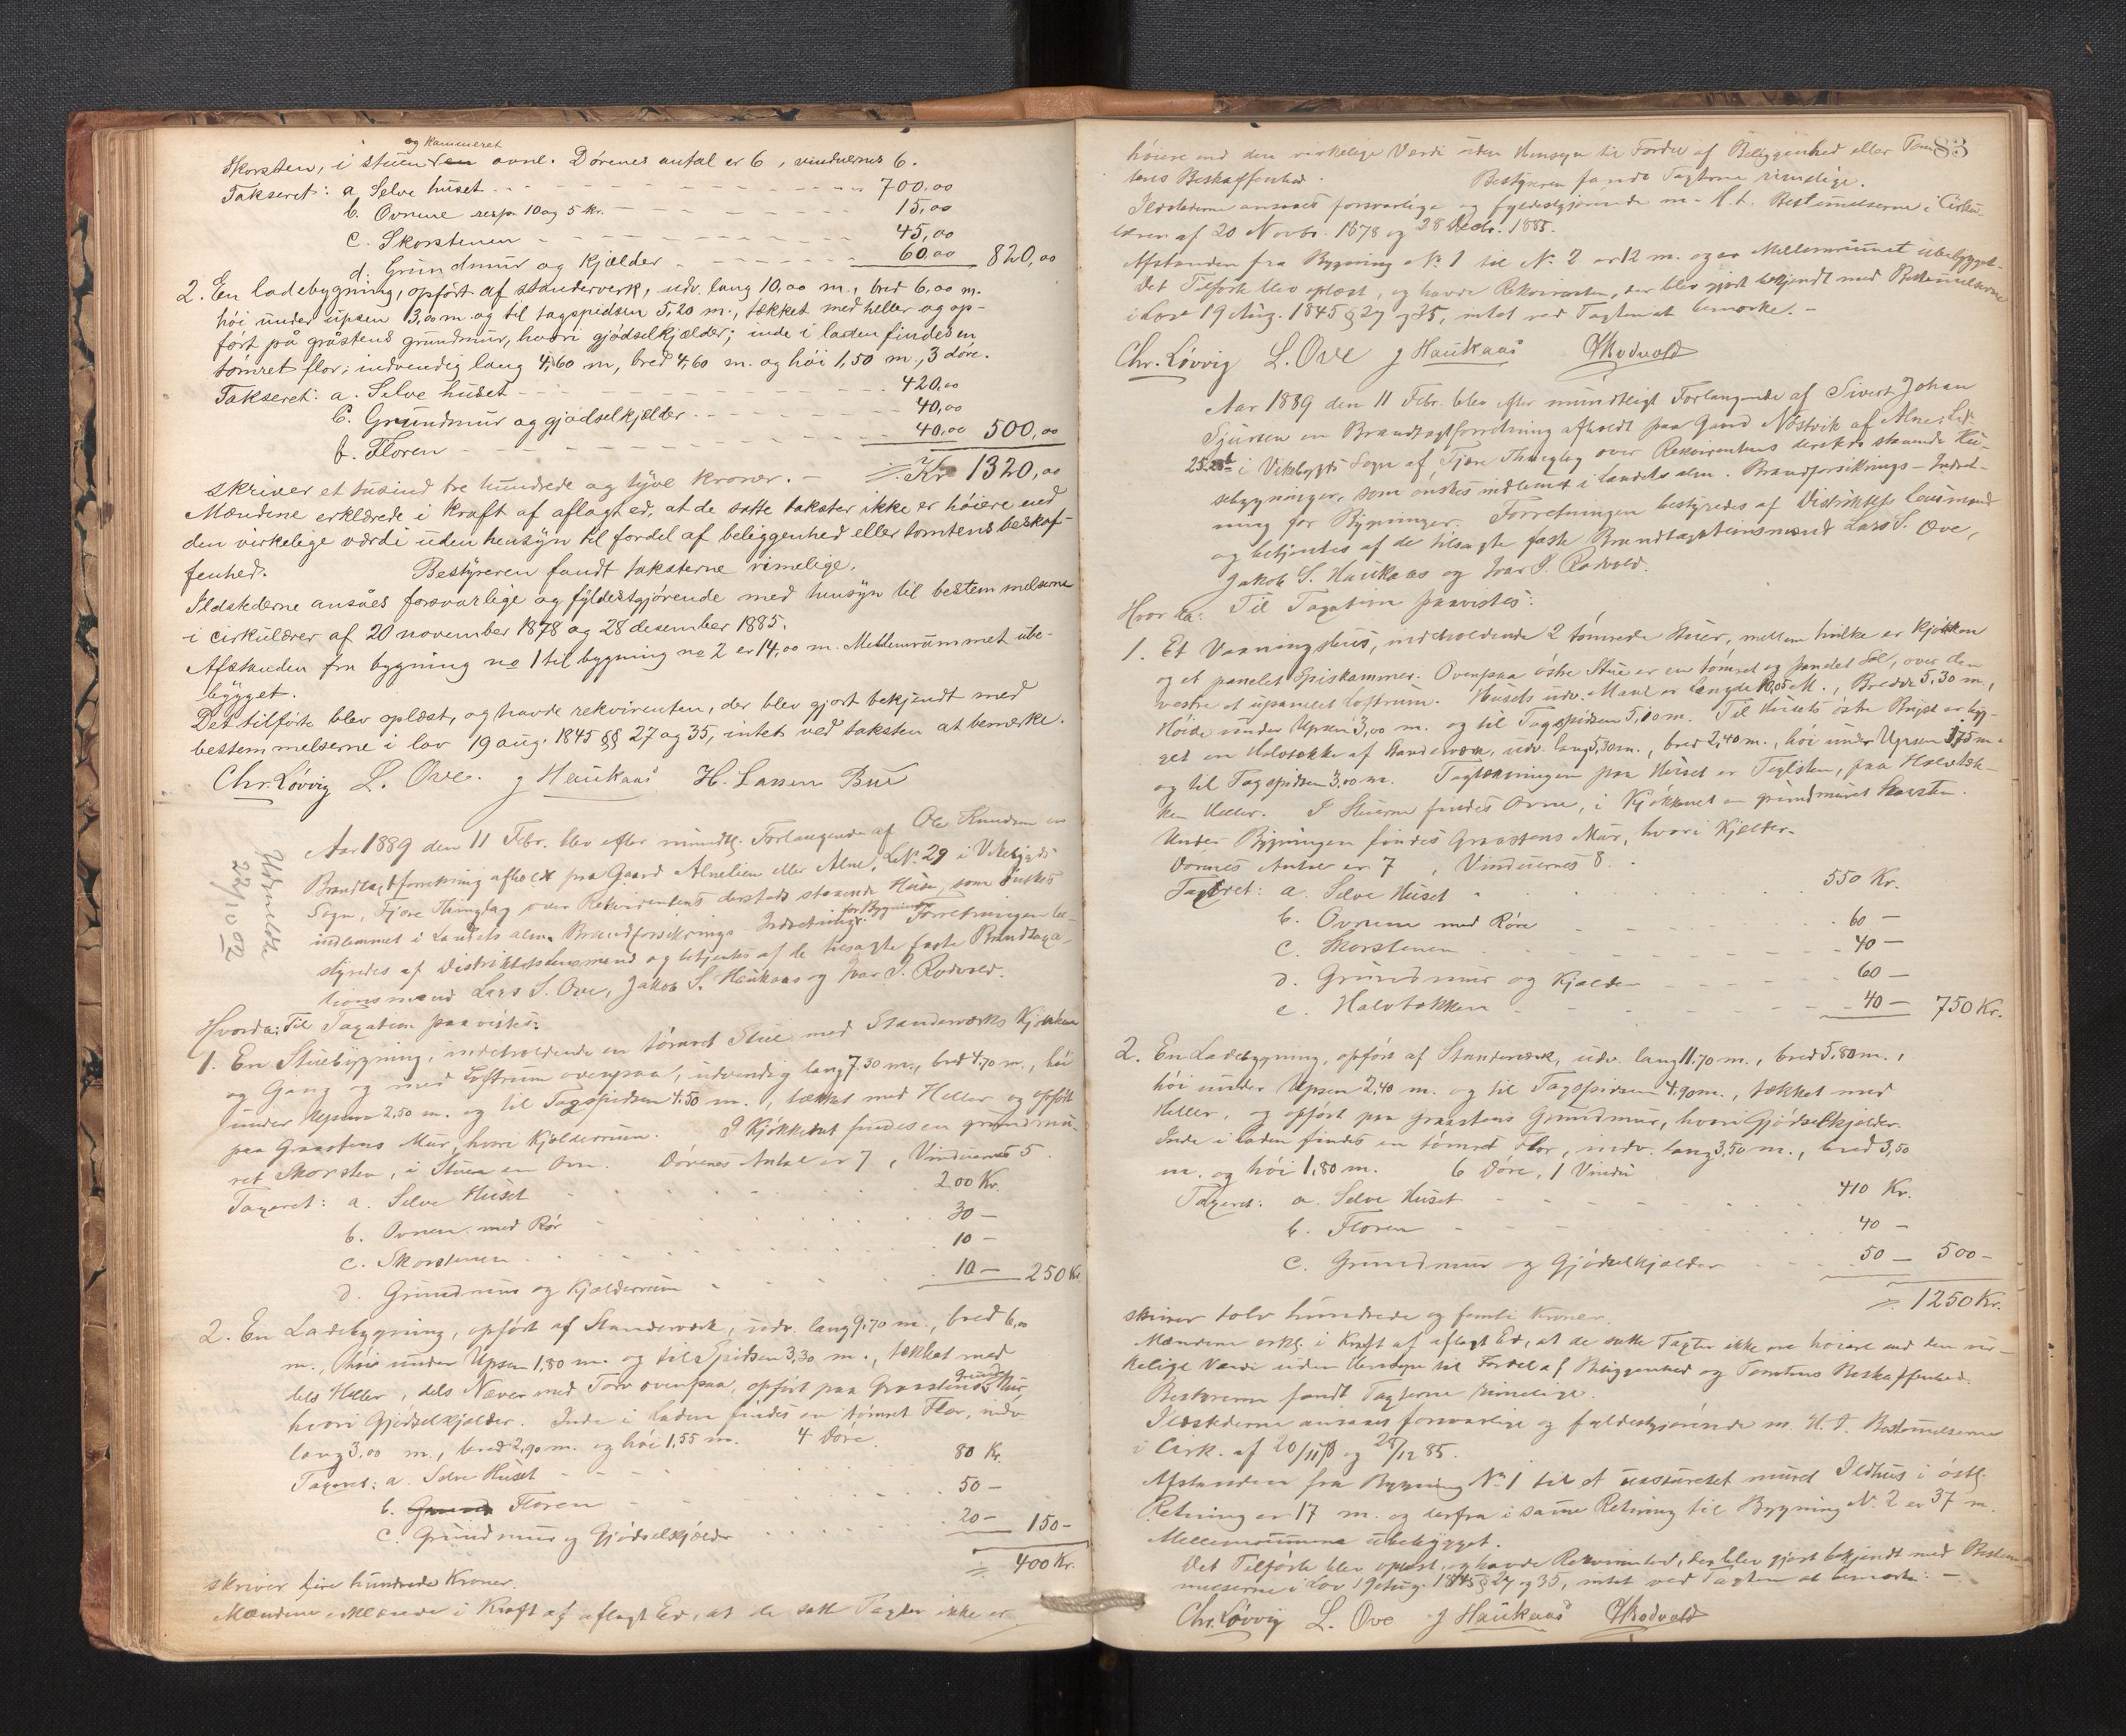 og kammeret
Skorsten, i stuen en ovne. Dørenes antal er 6, vinduernes 6.
Takseret: a. Selve huset 700,00
b. Ovnene resp. 10 og 5 kr. 15,00
c. Skorstenen 45,00
d. Grundmur og kjælder 60,00 820,00
2. En ladebygning, opført af standerverk, udv. lang 10,00 m., bred 6,00 m.
høi under upsen 3,00 m. og til tagspidsen 5,20 m., tækket med heller og op-
ført på gråstens grundmur, hvori gjødselkjælder; inde i laden findes en
tømret flor; indvendig lang 4,60 m, bred 4,60 m. og høi 1,50 m., 3 døre.
Takseret: a. Selve huset 420,00
b. Grundmur og gjødselkjælder 40,00
f. Floren 40,00 500,00
Kr 1320,00
skriver et tusind tre hundrede og tyve kroner. -
Mændene erklærede i kraft af aflagt ed, at de satte takster ikke er høiere end
den virkelige værdi uden hensyn til fordel af beliggenhed eller tomtens beskaf-
fenhed. Bestyreren fandt taksterne rimelige.
Ildstederne ansåes forsvarlige og fyldestgjørende med hensyn til bestemmelserne
i cirkulærer af 20 november 1878 og 28 desember 1885.
Afstanden fra bygning no 1 til bygning no 2 er 14,00 m. Mellemrummet ube-
bygget.
Det tilførte blev oplæst, og havde rekvirenten, der blev gjort bekjendt med
bestemmelserne i lov 19 aug. 1845 §§ 27 og 35, intet ved taksten at bemerke.
Chr. Løvvig L. Ove. J Haukaas H. Lassen Bue
Udmeldt
22/10 02
Aar 1889 den 11 Febr. blev efter mundtlg. Forlangende af Ole Knudsen en
Brandtaxtforretning afholdt paa Gaard Alnelien eller Alne, L.No. 29 i Vikebygds
Sogn, Fjære Thinglag over Rekvirentens dersteds staaende Huse, som ønskes
for Bygninger
indlemmet i Landets alm. Brandforsikrings-Indretning. Forretningen be-
styredes af Distriktets lensmand og betjentes af de tilsagte faste Brandtaxa-
tionsmænd Lars S. Ove, Jakob S. Haukaas og Ivar I. Rodvold.
Hvorda: Til Taxation paavistes:
1. En Stuebygning, indeholdende en tømret Stue med Standerværks Kjøkken
og Gang og med Loftrum ovenpaa, udvendig lang 7,30 m., bred 4,70 m., høi
under Upsen 2,50 m. og til Tagspidsen 4,50 m., tækket med Heller og opført
paa Graastens Mur, hvori Kjælderrum. I Kjøkkenet findes en grundmu-
ret Skorsten, i Stuen en Ovn. Dørenes Antal er 7, Vinduernes 5.
Taxeret: a. Selve Huset 200 Kr.
b. Ovnen med Rør 30 -
c. Skorstenen 10 -
d. Grundmur og Kjælderrum 10 - 250 Kr.
2. En Ladebygning, opført af Standerværk, udv. lang 9,70 m., bred 6,00
m., høi under Upsen 1,80 m. og til Spidsen 3,30 m., tækket med
Grund
dels Heller, dels Næver med Torv ovenpaa, opført paa Graastens Mur,
hvori Gjødselkjælder. Inde i Laden findes en tømret Flor, indv.
lang 3,00 m., bred 2,90 m. og høi 1,55 m. 4 Døre.
Taxeret: a. Selve Huset 80 Kr.
b. Grund Floren 50 -
c. Grundmur og Gjødselkjælder 20 - 150 -
400 Kr.
skriver fire hundrede Kroner.
Mændene erklærede i Kraft af aflagt Ed, at de satte Taxter ikke er
83
høiere end den virkelige Værdi uden Hensyn til Fordel af Beliggenhed eller Tom-
tens Beskaffenhed. Bestyreren fandt Taxterne rimelige.
Ildstederne ansaaes forsvarlige og fyldestgjørende m. H. t. Bestemmelserne i Cirku-
læren af 20 Novbr. 1878 og 28 Decbr. 1885.
Afstanden fra Bygning No. 1 til No. 2 er 12 m. og er Mellemrummet ubebygget.
Det Tilførte blev oplæst, og havde Rekvirenten, der blev gjort bekjendt med Bestemmelserne
i Lov 19 Aug. 1845 § 27 og 35, intet ved Taxten at bemærke. -
Chr. Løvvig L. Ove J Haukaas IIRodvold
Aar 1889 den 11 Febr. blev efter mundtligt Forlangende af Sivert Johan
Sjursen en Brandtaxtforretning afholdt paa Gaard Nøstvik af Alne, L.No.
25 i Vikebygds Sogn af Fjære Thinglag over Rekvirentens dersteds staaende Hu-
sebygninger, som ønskes indlemmet i Landets alm. Brandforsikrings-Indret-
ning for Bygninger. Forretningen bestyredes af Distriktets lensmand
og betjentes af de tilsagte faste Brandtaxationsmænd Lars S. Ove,
Jakob S. Haukaas og Ivar I. Rodvold.
Hvorda: Til Taxation paavistes:
1. Et Vaaningshus, indeholdende 2 tømrede Stuer, mellem hvilke er Kjøkken
og et panelet Spiskammer. Ovenpaa østre Stue er en tømret og panelet Sal, over den
vestre et upanelet Loftrum. Husets udv. Maal er længde 10,05 M., Bredde 5,30 m.,
Høide under Upsen 3,00 m. og til Tagspidsen 5,10 m. Til Husets østre Brjst er byg-
get en Halvtække af Standerværk, udv. lang 5,30 m., bred 2,40 m., høi under Upsen 1,75 m.
og til Tagspidsen 3,00 m. Tagtækningen paa Huset er Teglsten, paa Halvtæk-
ken Heller. I Stuerne findes Ovne, i Kjøkkenet en grundmuret Skorsten.
Under Bygningen findes Graastens Mur, hvori Kjælder.
Dørenes Antal er 7, Vinduernes 8.
Taxeret: a. Selve Huset 550 Kr.
b. Ovnene med Røre 60 -
c. Skorstenen 40 -
d. Grundmur og Kjælder 60 -
e. Halvtækken 40 - 750 Kr.
2. En Ladebygning, opført af Standerværk, udv. lang 11,70 m., bred 5,80 m.,
høi under Upsen 2,40 m. og til Tagspidsen 4,90 m., tækket med
Heller, og opført paa Graastens Grundmur, hvori Gjødselkjælder.
Inde i Laden findes en tømret Flor, indv. lang 3,50 m., bred 3,50
m. og høi 1,80 m. 6 Døre, 1 Vindu
Taxeret: a. Selve Huset 410 Kr.
b. Floren 40 -
c. Grundmur og Gjødselkjælder 50 - 500 -
1250 Kr.
skriver tolv hundrede og femti Kroner.
Mændene erkl. i Kraft af aflagt Ed, at de satte Taxter ikke ere høiere end den vir-
kelige Værdi uden Hensyn til Fordel af Beliggenhed og Tomtens Beskaffenhed.
Bestyreren fandt Taxterne rimelige.
Ildstederne ansaaes forsvarlige og fyldestgjørende m. H. t. Bestemmelserne
i Cirk. af 20/11 78 og 28/12 85.
Afstanden fra Bygning No. 1 til et uassureret muret Ildhus i østlg.
Retning er 17 m. og derfra i samme Retning til Bygning No. 2 er 37 m.
Mellemrummene ubebygget.
Det Tilførte blev oplæst, og havde Rekvirenten, der blev gjort bekjendt med Bestem-
melserne i Lov 19 Aug. 1845 § 27 og 35, intet ved Taxten at bemærke: -
Chr. Løvvig L. Ove J Haukaas IIRodvold